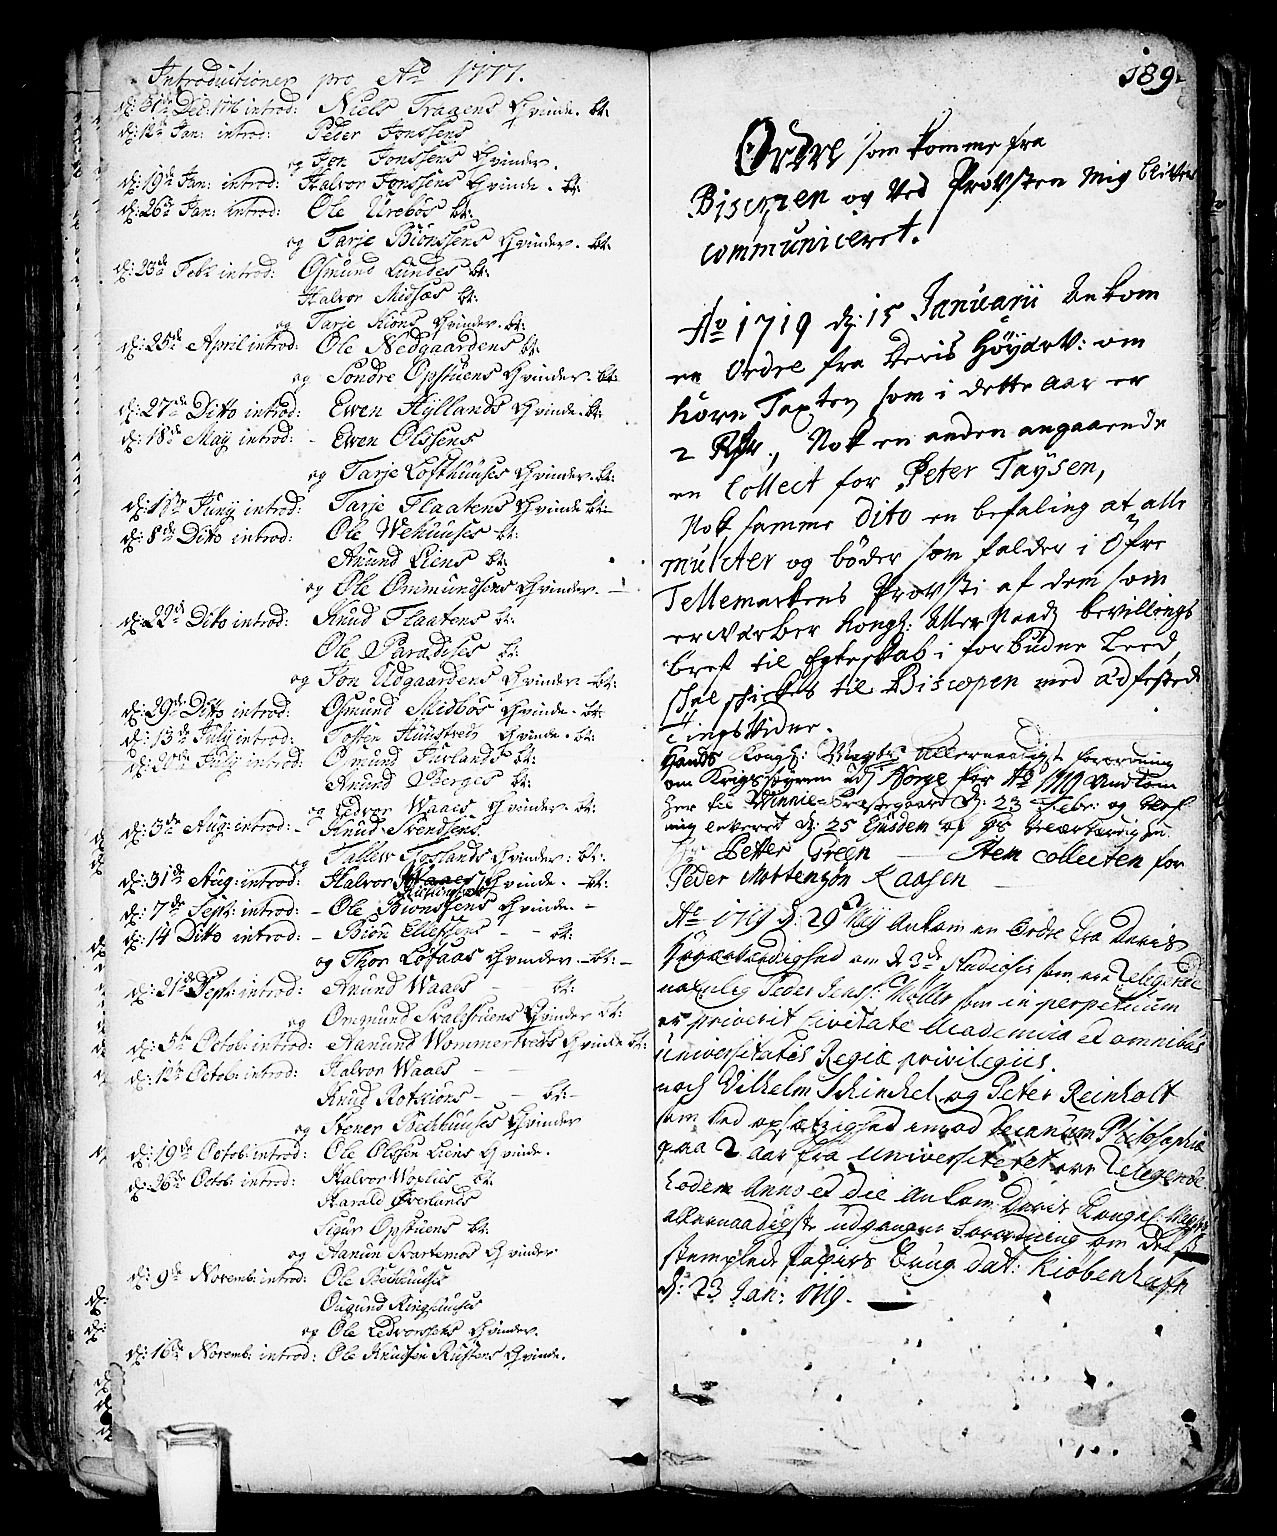 Introductioner pro Ao 1777.
d: 31te Dec: 1776 introd: Niels Tragens Qvinde. bt:
d: 12te Jan: introd: Peder Jonssens
og Jon Jonssens Qvinder.
d: 19de Jan: introd: Halvor Jonssens Qvinde. bt:
d: 26de Jan: introd: Ole Urebøs bt:
og Tarje Biønssens Qvinder. bt:
d: 23de Feb: introd: Osmund Lundes bt:
Halvor Midsæs bt:
og Tarje Kions Qvinder. bt:
d: 25de April introd: Ole Nedgaardens bt:
og Sondre Opstuens Qvinder. bt:
d: 27de Ditto introd: Ewen Hyllands Qvinde. bt:
d: 18de May introd: - Ewen Olssens
og Tarje Lofthuuses Qvinder. bt:
d: 1ste Juny introd: Tarje Flaatens Qvinde bt:
d: 8de Ditto introd: Ole Wehuuses bt:
Anund Liens bt:
og Ole Ommundsens Qvinder. -
d: 22de Ditto introd: Knud Flaatens bt:
Ole Paradises bt:
og Jon Udgaardens Qvinder bt:
d: 29de Ditto introd: Osmund Midbøs Qvinde. bt:
d: 13de July introd: Tosten Huusveds Qvinde. bt:
d: 20de July introd: Omund Jurlands bt:
Anund Berges bt:
og Ledvor Waaes Qvinder bt:
d: 3de Aug: introd: - Knud Svendsens
og Tallew Froslands Qvinder: bt:
d: 31te Aug: introd: Halvor Qvinde. - bt:
d: 7de Sept: introd: - Ole Bionssens Qvinde. -
d: 14 Ditto introd: - Bion Ellefsens - - bt:
og Thor Lofaas Qvinder - bt: -
d: 21de Sept: introd: Anund Waaes - - bt:
og Omgnund Svalestuens Qvinder bt:
d: 5te Octob: introd: Aanund Wommertveds Qvinde bt:
d: 12te Octob: introd: Halvor Waaes - -
Knud Rotkions - - bt: -
og Stener Bechuuses Qvinder
d: 19de Octob: introd: Ole Olssen Liens Qvinde.
d: 26de Octob: introd: Halvor Woplies bt:
Harald Øverlands
Sigur Opstuens bt:
og Aanun Svartemos Qvinder
d: 9de Novemb: introd: Ole Bechuuses
Ougund Ringhuuses
og Ole Ledvorssens Qvinder.
d: 16de Novemb: introd: Ole Knudsen Rustens Qvinde.
189.
Ordre som komme fra
Biscopen og ved Provsten mig bliver
communiceret.
Ao 1719 d: 15 Januarii Ankom
en Ordre fra Deris Høyærv: om
korn Taxten som i dette aar er
2 Rdr., Nok en anden angaaende
en Collect for Peter Taysen,
Nok samme dito en befaling at alle
mulcter og bøder som falder i Øfre
Tellemarkens Provsti af dem som
erværber Kongl: Aller Naadl bevillings
bref til Egteskab i forbudne Leed,
skal skickes til Biscopen med adfestede
Tingsvidne.
Hands Kongl: Mayts Allernaadigst forordning
om Krigsstyren udj Norge for Ao 1719 Ankom
her til Vinnie Præstegaard d: 23 Febr: og blef
mig leveret d: 25 Ejusdem af
Hr Petter Green - Item collecten for
Peder Mortensøn Kaasen -
Ao 1719 d: 29 Maij Ankom en Ordre fra Deris
Høyærværdighed om de 3de Studiosis som ere Relegerede
naunlig Peder Jens: Møller som in perpetuum
er priverit Civitate Academica et omnibus
universitatis Regiæ privilegiis.
noch Vilhelm Schinkel og Peter Reinholt
som ved opsætzighed imod Decanum Philosophiæ
paa 2 aar fra universitetet ere Relegerede
Eodem Anno et die Ankom Deris Kongl: Mayts
allernaadigste udgangne forordning om det
stemplede Papiirs brug dat: Kiøbenhafn
d: 23 Jan: 1719.